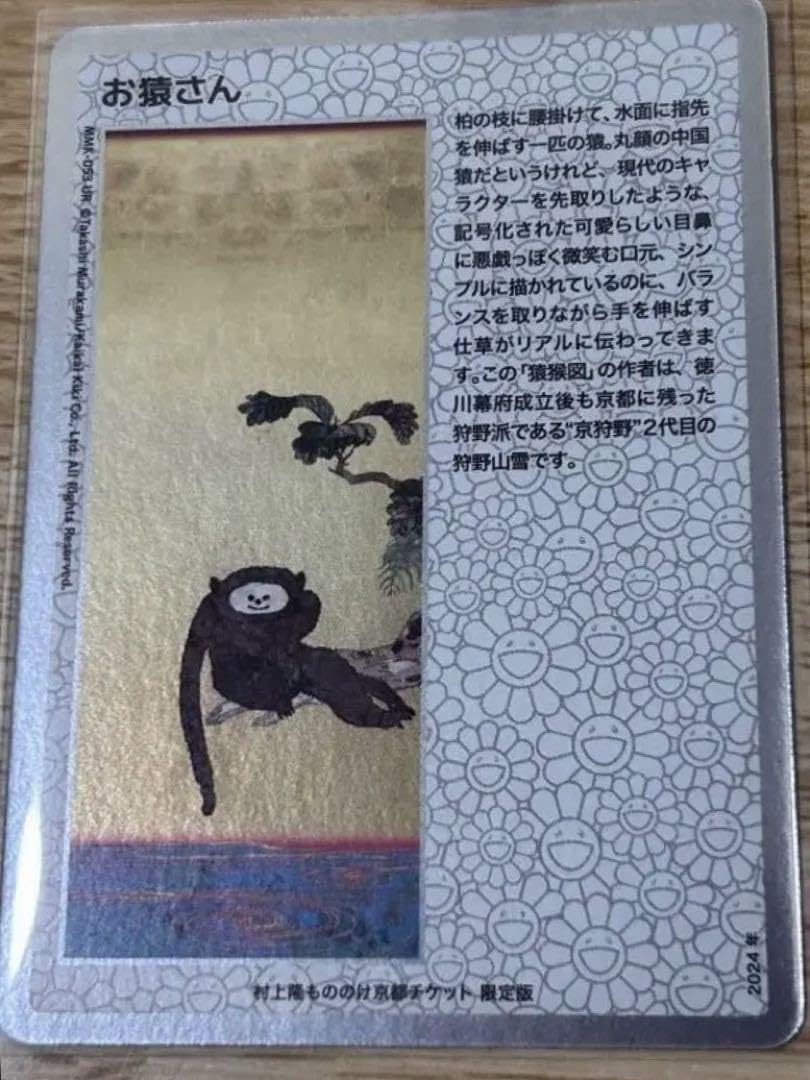 お猿さん
MMK-053 UR ©Takashi Murakami/Kaikai Kiki Co., Ltd. All Rights Reserved.
柏の枝に腰掛けて、水面に指先
を伸ばす一匹の猿。丸顔の中国
猿だというけれど、現代のキャ
ラクターを先取りしたような、
記号化された可愛らしい目鼻
に悪戯っぽく微笑む口元、シン
プルに描かれているのに、バラ
ンスを取りながら手を伸ばす
仕草がリアルに伝わってきま
す。この「猿猴図」の作者は、徳
川幕府成立後も京都に残った
狩野派である“京狩野”2代目の
狩野山雪です。
村上隆もののけ京都チケット 限定版
2024年